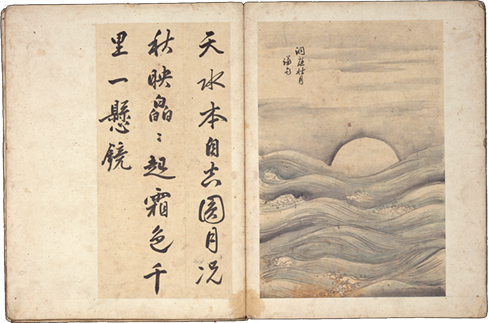 洞庭秋月
天水本自圓月况
秋映皛〻起霜色千
里一懸鏡